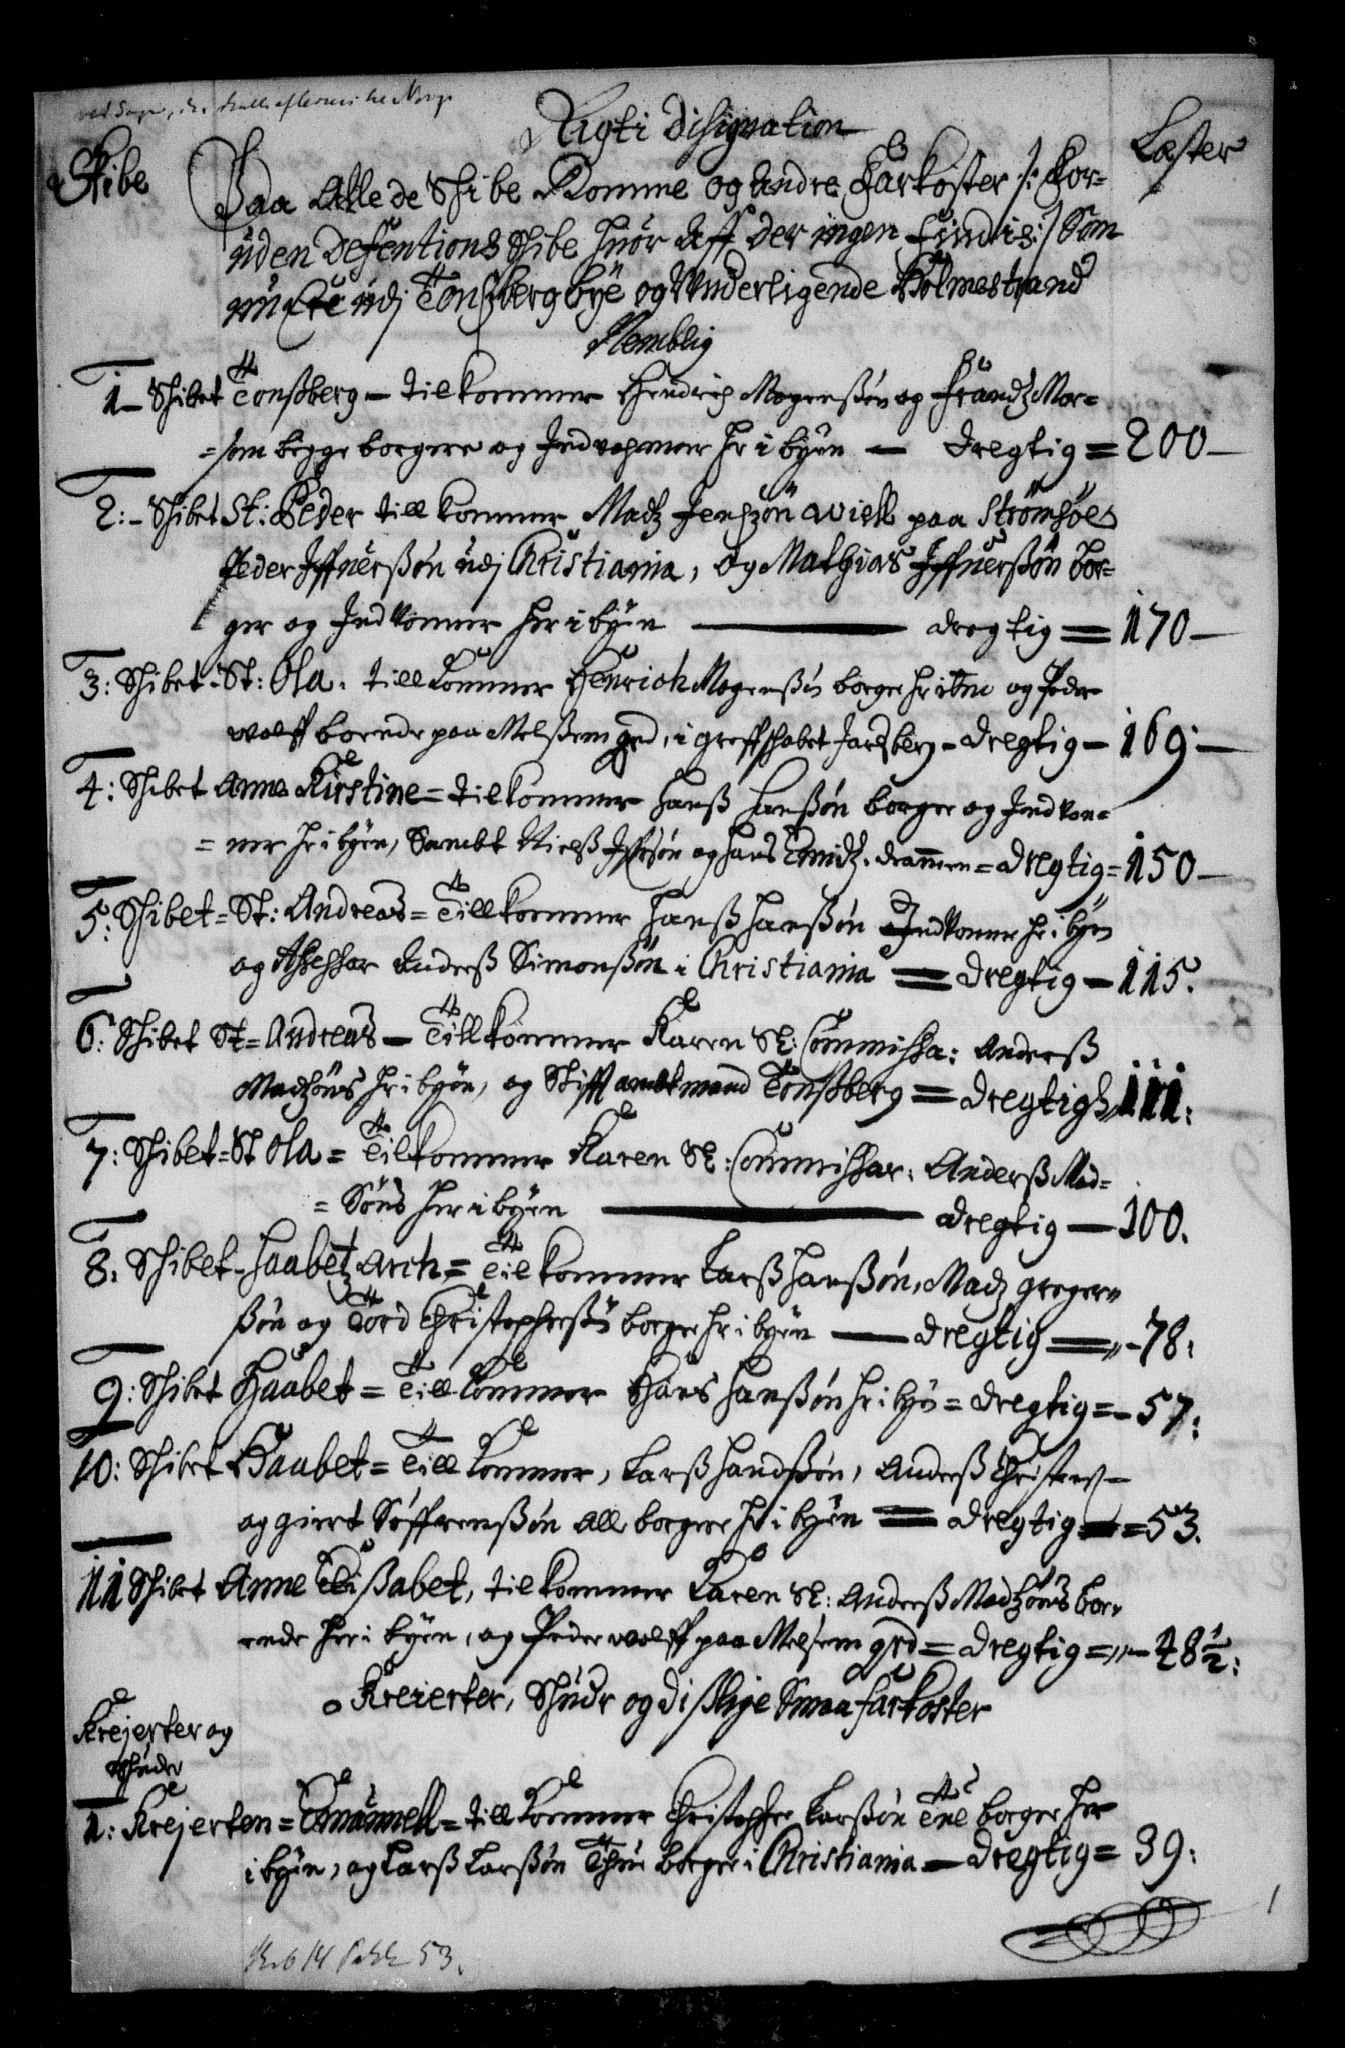 Rigti Disignation
Skibe
Læster
Paa Alle de Skibe Komme og Andre Farkoster /: For-
uden Defentions Skibe huor Aff der ingen findis :/ Som
udj Tonßberg bye og Underligende Holmestrand
Nemblig
1 - Skibet Tonßberg - tilkommer Hendrich Mogenßøn og Frandz Mor-
= sen begge borgere og Indvohnner her i byen - dregtig = 200 -
2: - Skibet St: Peder till kommer Madz Jenßøn Wiell paa Strømsøe
Peder Iffuerßøn udj Christiania, og Mathias Iffuerßøn bor-
ger og Indvonner her i byen - dregtig = 170 -
3: Skibet - St: Ola. till kommer Henrich Mogenßøn borger her i byen og Peder
wolff boende paa Melßem grd, i greffskabet Jarlsberg - dregtig - 169: -
4: Skibet Anne Kirstine = tilkommer Hanß Hanßøn borger og Indvon-
= ner her i byen, Sambt Nielß Jffersøn og Hans Smidtz. drammen = dregtig = 150 -
5: Skibet = St: Andreas = Till kommer Hanß Hanßøn Indvonner her i byen
og Assessor Anderß Simonßøn i Christiania = dregtig - 115.
6: Skibet St = Andreas - Till kommer Karen Sl: Commissa: Anderß
Madzøns her i byen, og Stiff ambtmand Tonßberg = dregtigh 111:
7: Skibet = St Ola = Tilkommer Karen Sl: Commissar: Anderß Mad-
= Søns her i byen - dregtig - 100.
8: Skibet - Haabetz Arch = Tilkommer Larß Hanßøn, Madz greger-
ßøn og Tord Christopherßøn borger her i byen - dregtig = 78:
9: Skibet Haabet = Till kommer Hans Hanßøn her i byen = dregtig = - 57:
10: Skibet Haabet = Till kommer, Larß Handßøn, Anderß Christens -
og giert Søffrenßøn Alle borgere her i byen = dregtig = 53.
11 Skibet Anne Elißabet, tilkommer Karen Sl: Anderß Madzøns bo-
ende her i byen, og Peder wolff paa Melsem grd = dregtig = - 48 1/2:
Kreierter, Skuder og disslige Smaa farkoster
Krejerter og
Skuder
1: Krejerten = Emanuell = till kommer Christopher Larßøn borger her
i byen, og Larß Larßøn borger i Christiania - dregtig = 39:
1
53.